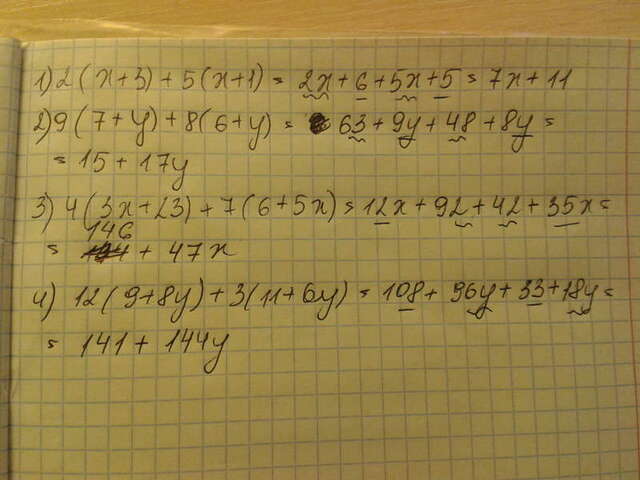 1) 2(x+3)+5(x+1) = 2x+6+5x+5 = 7x+11
2) 9(7+y)+8(6+y) = 63+9y+48+8y =
= 15+17y
3) 4(3x+23)+7(6+5x) = 12x+92+42+35x =
= 146 + 47x
4) 12(9+8y)+3(11+6y) = 108+96y+33+18y =
= 141+144y